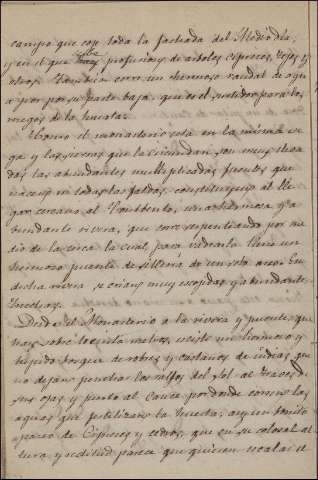 campo que coj toda la fachada del Mediodia,
y en el que hay profusion de arboles cipreces, tejos y
otros. Tambien corre un hermoso raudal de agu
a por su parte baja, que es el surtidor para los
riegos de la huerta.
Como el monasterio está en la misma ve
ga y las sierras que la circundan, son muy eleva
das las abundantes multiplicadas fuentes que
nacen en todas las faldas, constituyen al lle
gar cercano al Combento, una hermosa y a
bundante rivera, que corre serpenteando por me
dio de la cerca la cual para vadearla tiene un
hermoso puente de silleria de un solo arco. En
dicha rivera se crian muy escojidas y abundantes
truchas.
Desde el Monasterio á la rivera y puente, que
hay sobre metros, existe un hermoso y
tupido bosque de robres y castaños de indias que
no dejan penetrar los rallos del Sol al traves de
sus ojas, y junto al cauce por donde corren las
aguas que fertilizan la huerta; ay un bonito
paseo de Cipreces y cedros, que en su colosal al
tura y rectitud parece que quieren escalar el